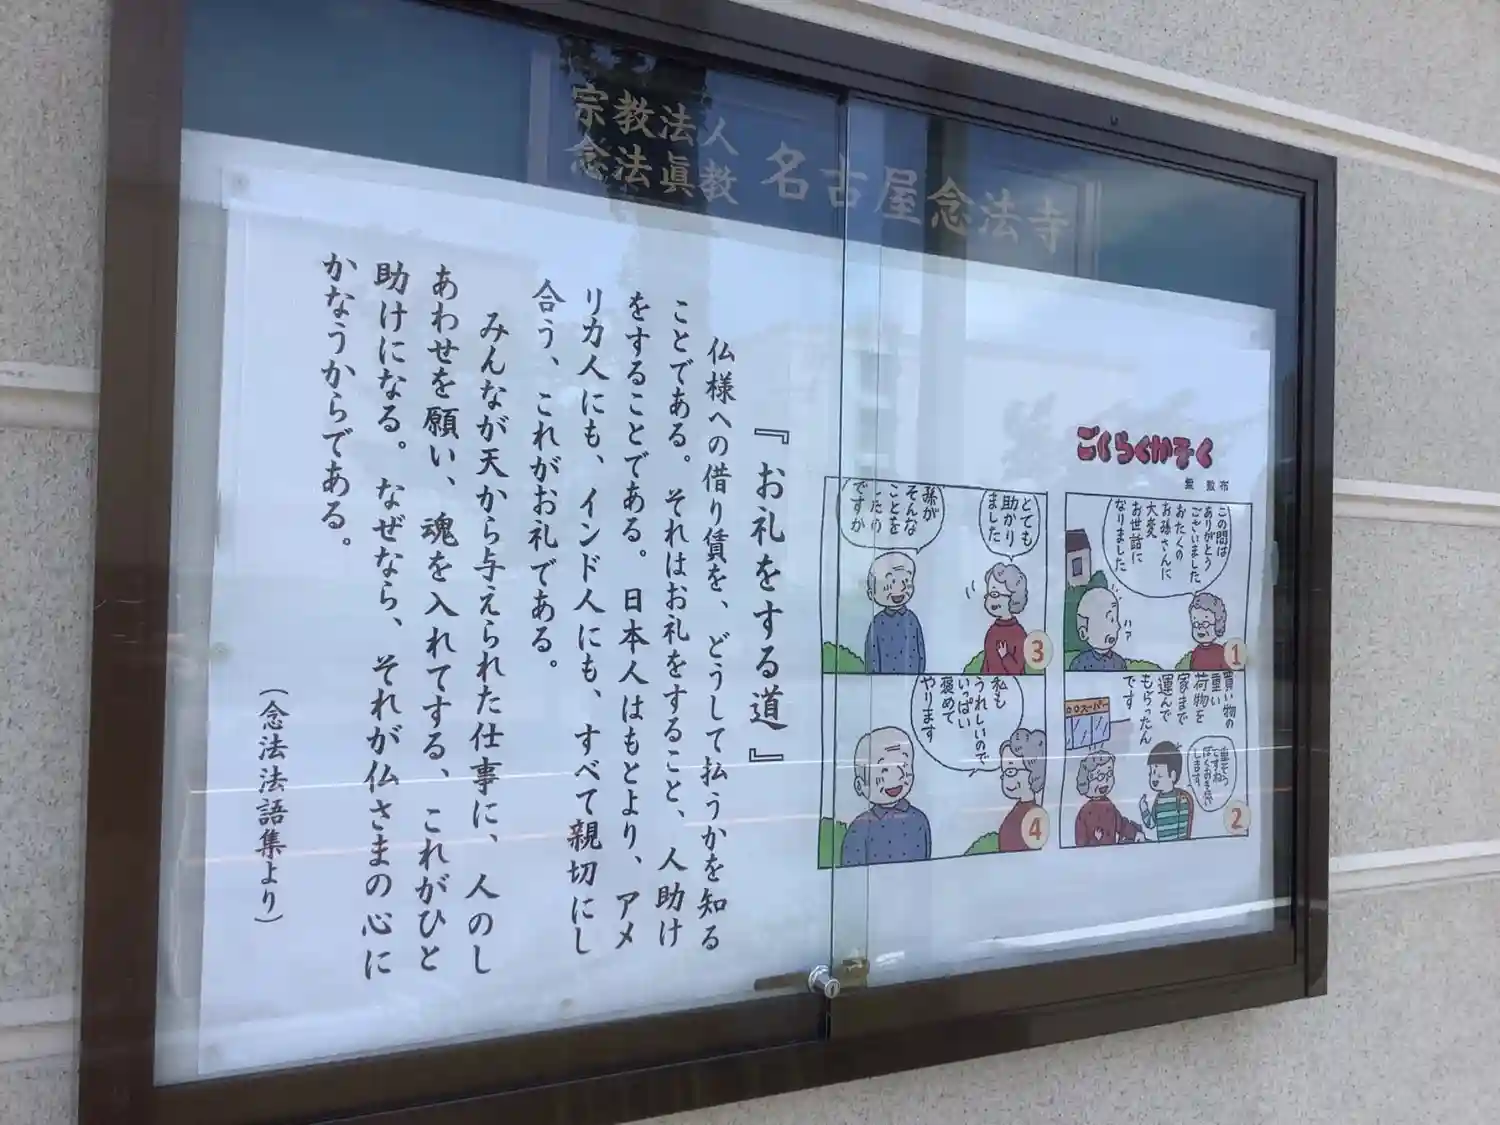 宗教法人
念法眞教
名古屋念法寺
『お礼をする道』
仏様への借り賃を、どうして払うかを知る
ことである。それはお礼をすること、人助け
をすることである。日本人はもとより、アメ
リカ人にも、インド人にも、すべて親切にし
合う、これがお礼である。
みんなが天から与えられた仕事に、人のし
あわせを願い、魂を入れてする、これがひと
助けになる。なぜなら、それが仏さまの心に
かなうからである。
(念法法語集より)
ごくらくかぞく
この間は
ありがとう
ございました
おたくの
お孫さんに
大変
お世話に
なりました
ハァ
1
買い物の
重い
荷物を
家まで
運んで
もらったん
です
○○スーパー
重そう
ですね
ぼくお手伝い
します
2
とても
助かり
ました
孫が
そんな
ことを
したの
ですか
3
私も
うれしいので
いっぱい
褒めて
やります
4